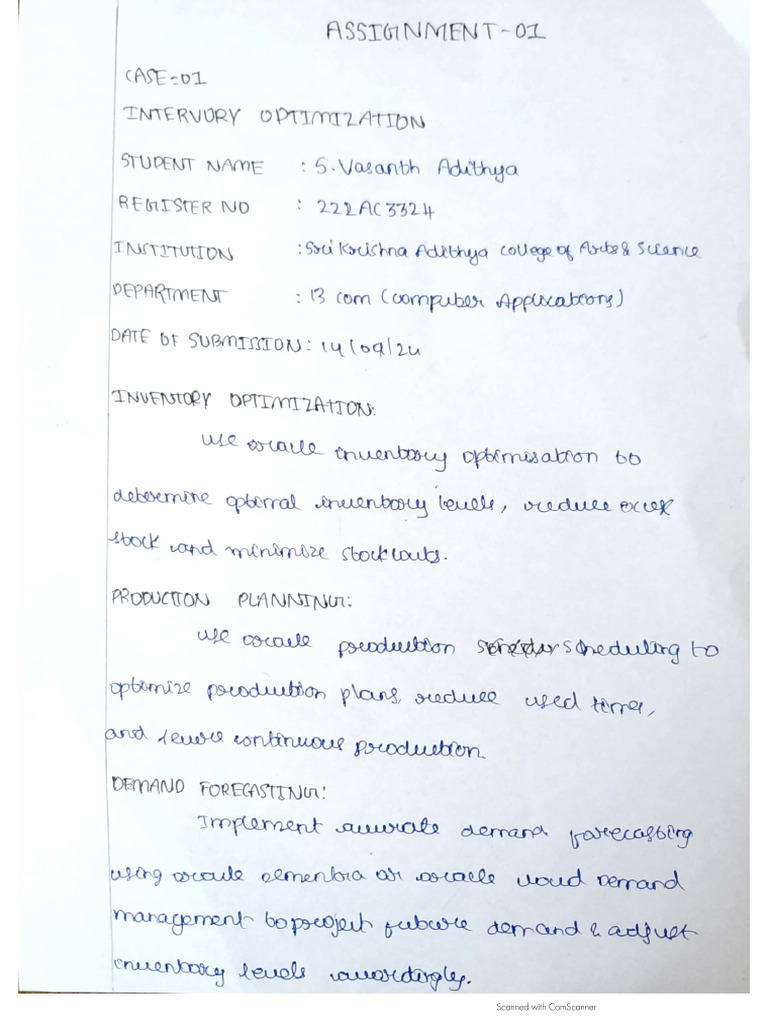 ASSIGNMENT-01
CASE-01
INTERVORY OPTIMIZATION
STUDENT NAME : S.Vasanth Adithya
REGISTER NO : 222AC3324
INSTITUTION : Sri Krishna Adithya college of Arts & Science
DEPARTMENT : B com (computer Applications)
DATE OF SUBMISSION : 14/09/24
INVENTORY OPTIMIZATION:
use oracle inventory optimisation to
determine optimal inventory levels, reduce excess
stock and minimize stockouts.
PRODUCTION PLANNING:
use oracle production scheduling to
optimize production plans, reduce used times,
and continuous production.
DEMAND FORECASTING:
Implement accurate demand forecasting
using oracle or oracle cloud Demand
management to project future demand & adjust
inventory levels accordingly.
Scanned with CamScanner